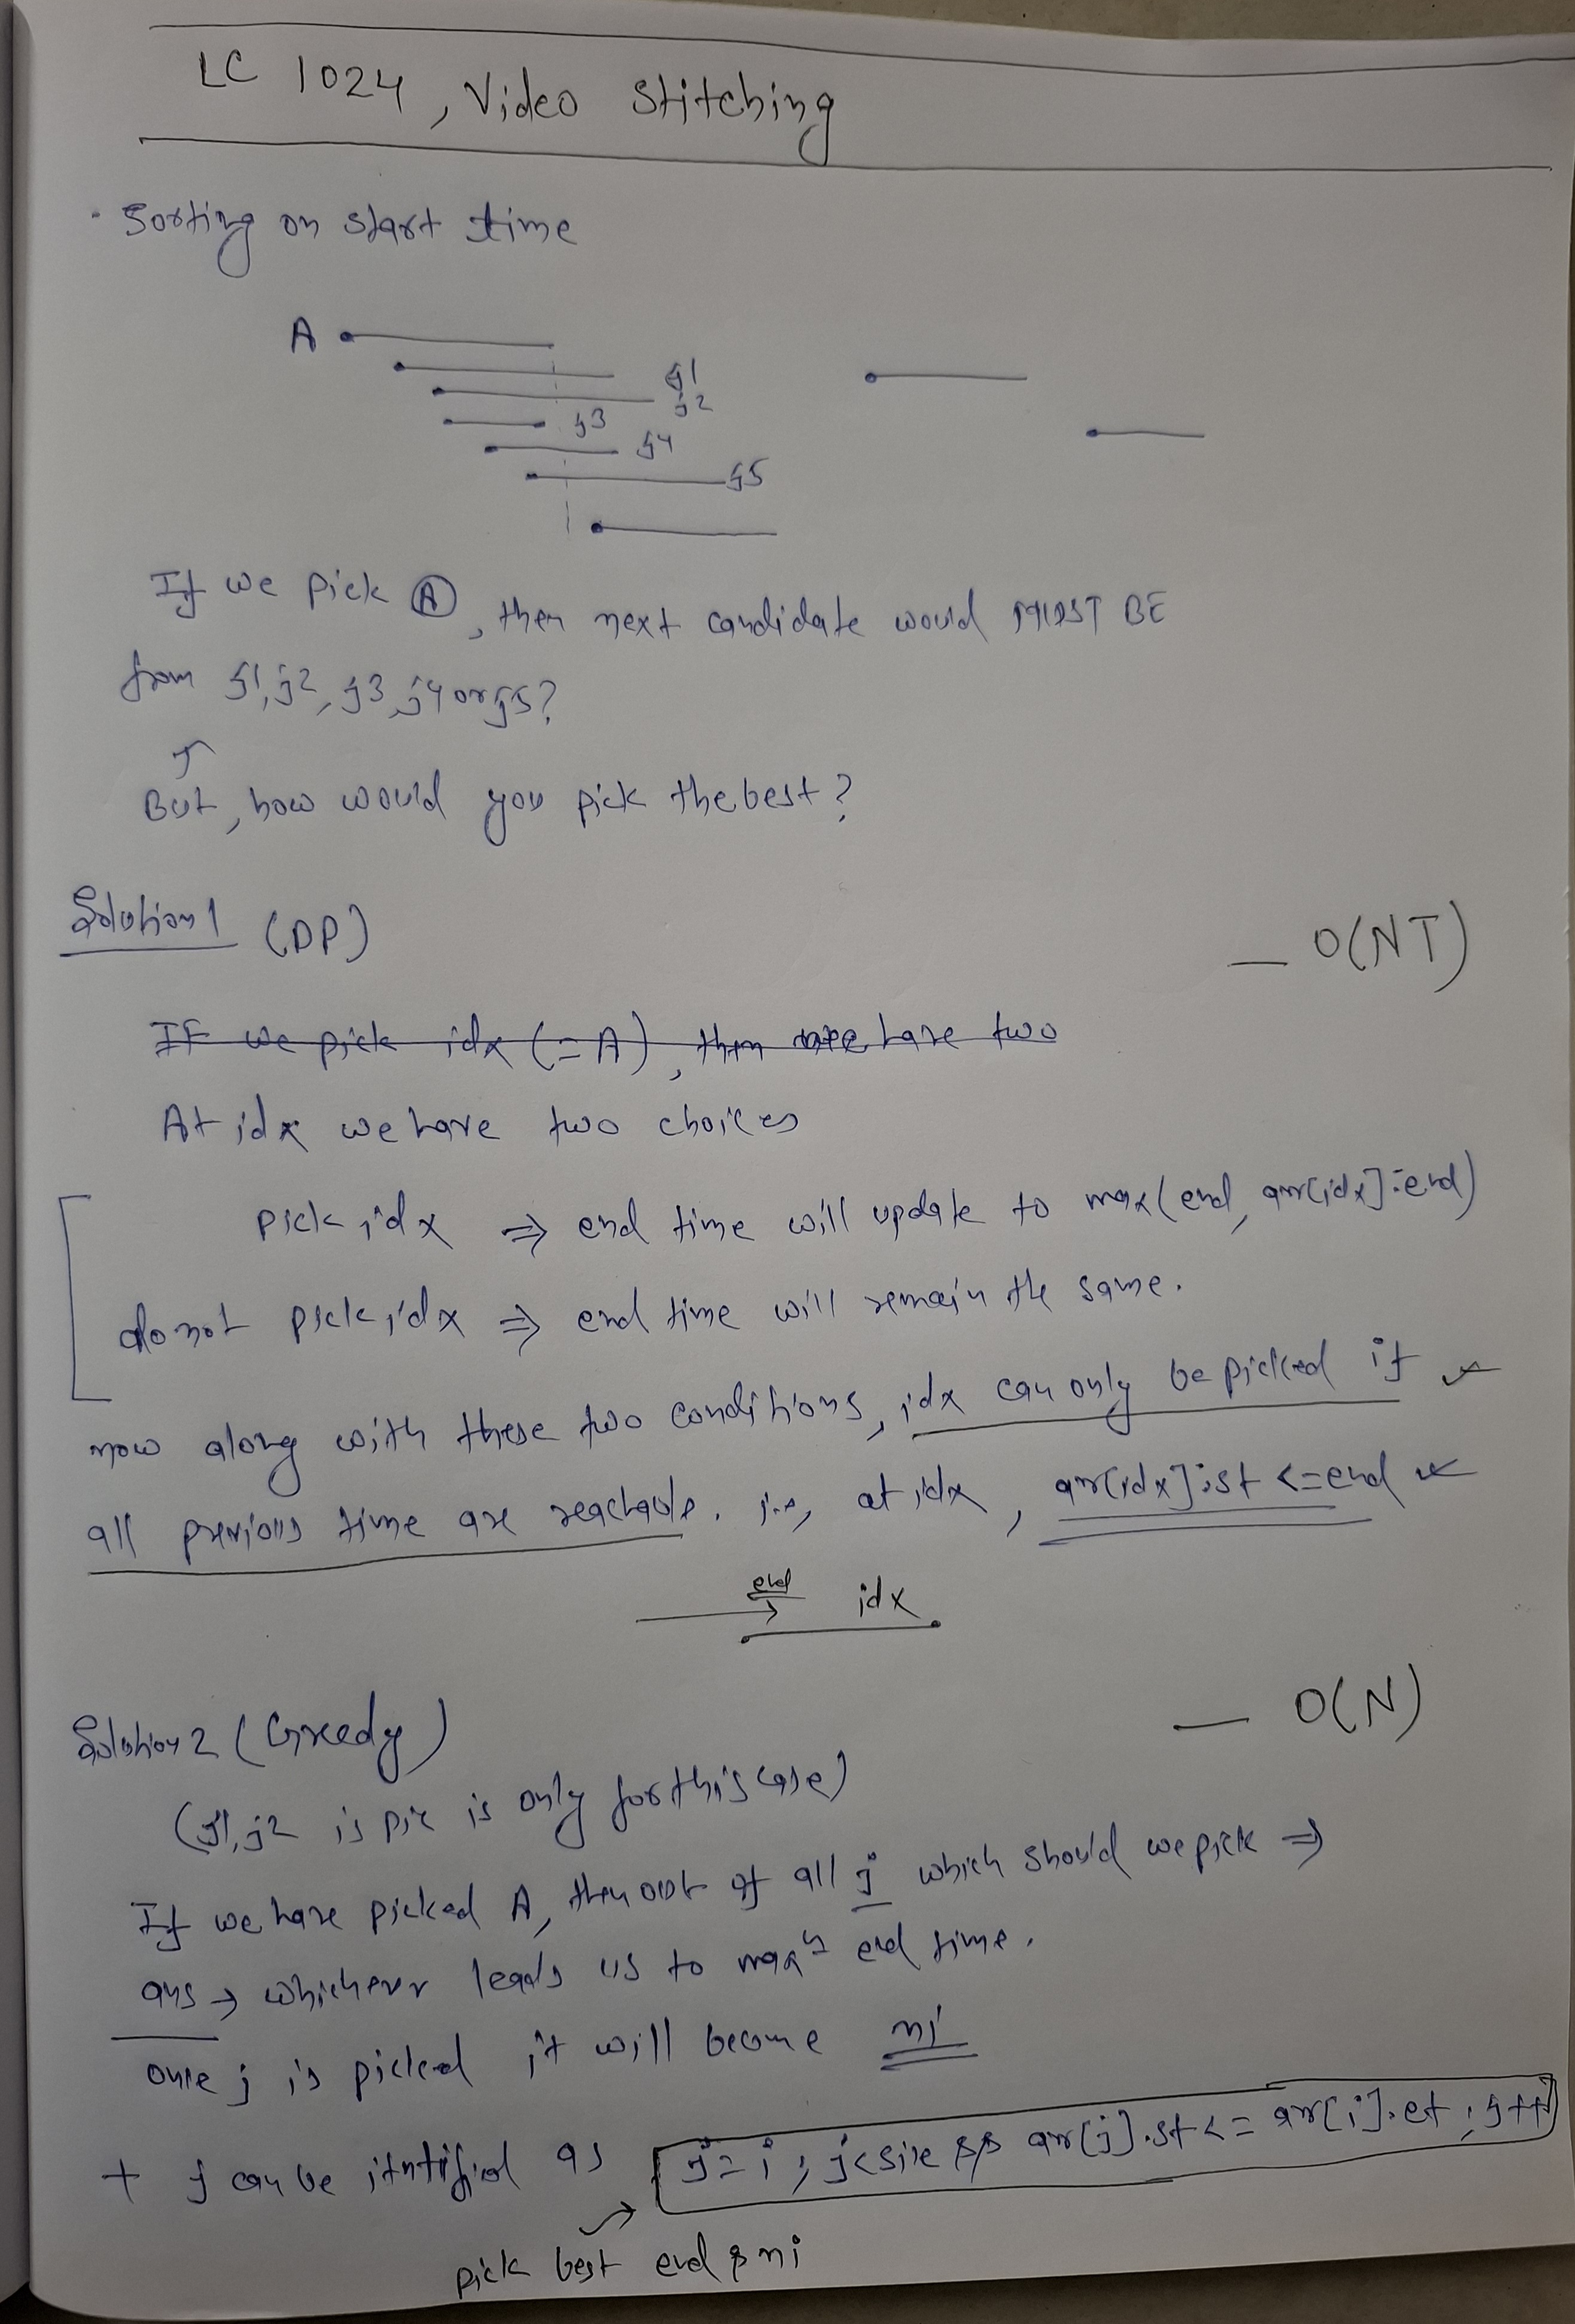 LC 1024, Video Stitching
· Sorting on start time
A
j1
j2
j3
j4
j5
If we pick Ⓐ, then next candidate would MUST BE
from j1, j2, j3, j4 or j5?
But, how would you pick the best?
Solution 1 (DP) — O(NT)
If we pick idx (=A), then we have two
At idx we have two choices
pick idx ⇒ end time will update to max(end, arr[idx].end)
do not pick idx ⇒ end time will remain the same.
now along with these two conditions, idx can only be picked if
all previous time are reachable. i.e, at idx, arr[idx].st <= end
end idx
Solution 2 (Greedy) — O(N)
(j1, j2 is pic is only for this case)
If we have picked A, then out of all j which should we pick ⇒
ans → whichever leads us to maxm end time.
once j is picked it will become ni
+ j can be itntified as j=i; j<size && arr[j].st <= arr[i].et; j++
pick best end & ni